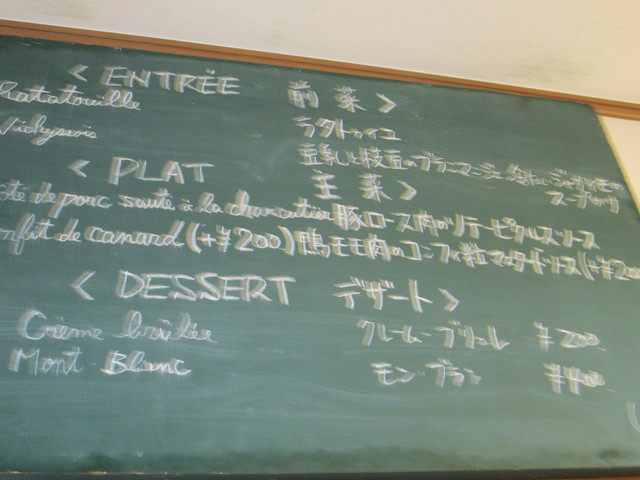 < ENTRÉE 前菜 >
Ratatouille ラタトゥイユ
Vichyssois 豆乳と枝豆のブランマージェ 冷たいジャガイモの
スープ
< PLAT 主菜 >
ôte de porc sauté à la charcutier 豚ロース肉のソテーピクルスソース
onfit de canard (+¥200) 鴨モモ肉のコンフィ粒マスタードソース(+¥200
< DESSERT デザート >
Crème brûlée クレーム・ブリュレ ¥200
Mont-Blanc モン・ブラン ¥400